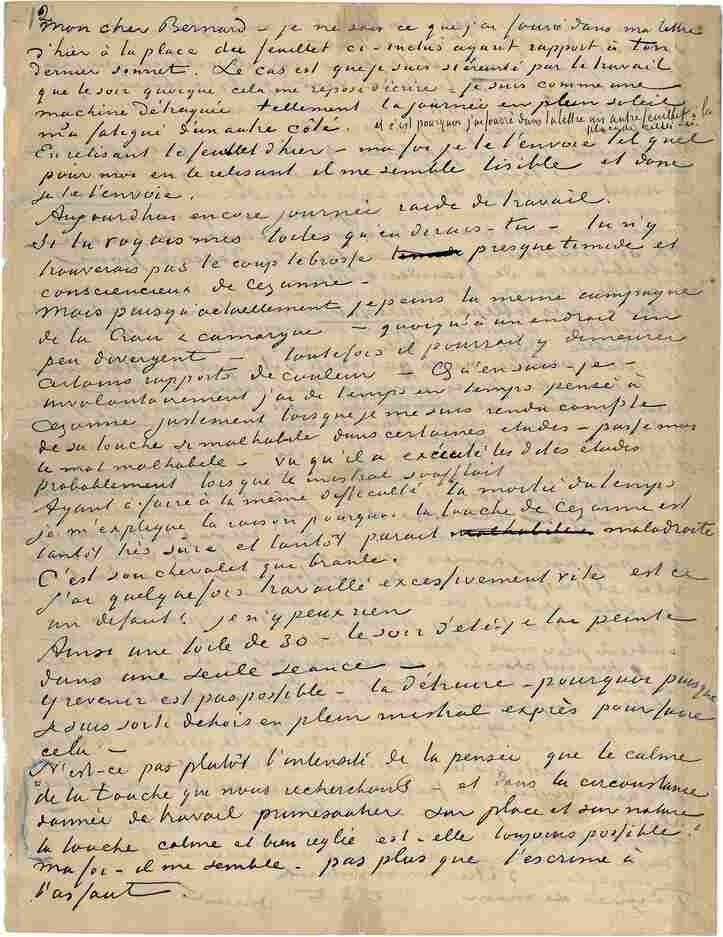 Mon cher Bernard – je ne sais ce que j'ai fourré dans ma lettre
d'hier à la place du feuillet ci-inclus ayant rapport à ton
dernier sonnet. Le cas est que je suis si éreinté par le travail
que le soir quoique cela me repose d'écrire – je suis comme une
machine détraquée tellement la journée en plein soleil
m'a fatigué d'un autre côté. et c'est pourquoi j'ai fourré dans la lettre un autre feuillet à la
place de celui-ci
En relisant le feuillet d'hier – ma foi je te l'envoie tel quel
pour moi en le relisant il me semble lisible et donc
je te l'envoie.
Aujourdhui encore journée raide de travail.
Si tu voyais mes toiles qu'en dirais-tu – tu n'y
trouverais pas le coup de brosse presque timide et
consciencieux de Cezanne –
Mais puisqu'actuellement je peins la même campagne
de la Crau & camargue – quoiqu'à un endroit un
peu divergent – toutefois il pourrait y demeurer
certains rapports de couleur – Qu'en sais-je –
involontairement j'ai de temps en temps pensé à
Cezanne justement lorsque je me suis rendu compte
de sa touche si malhabile dans certaines etudes – passe moi
le mot malhabile – vu qu'il a executé les dites études
probablement lorsque le mistral soufflait
Ayant à faire à la même difficulté la moitié du temps
je m'explique la raison pourquoi la touche de Cezanne est
tantôt très sûre et tantôt parait malhabile maladroite
C'est son chevalet qui branle.
J'ai quelquefois travaillé excessivement vite est ce
un defaut? je n'y peux rien
Ainsi une toile de 30 – le soir d'eté je l'ai peinte
dans une seule seance –
y revenir est pas possible – la détruire – pourquoi puisque
je suis sorti dehors en plein mistral exprès pour faire
cela –
N'est-ce pas plutôt l'intensité de la pensée que le calme
de la touche que nous recherchons – et dans la circonstance
donnée de travail primesautier sur place et sur nature
la touche calme et bien reglée est-elle toujours possible?
Ma foi – il me semble – pas plus que l'escrime à
l'assaut.